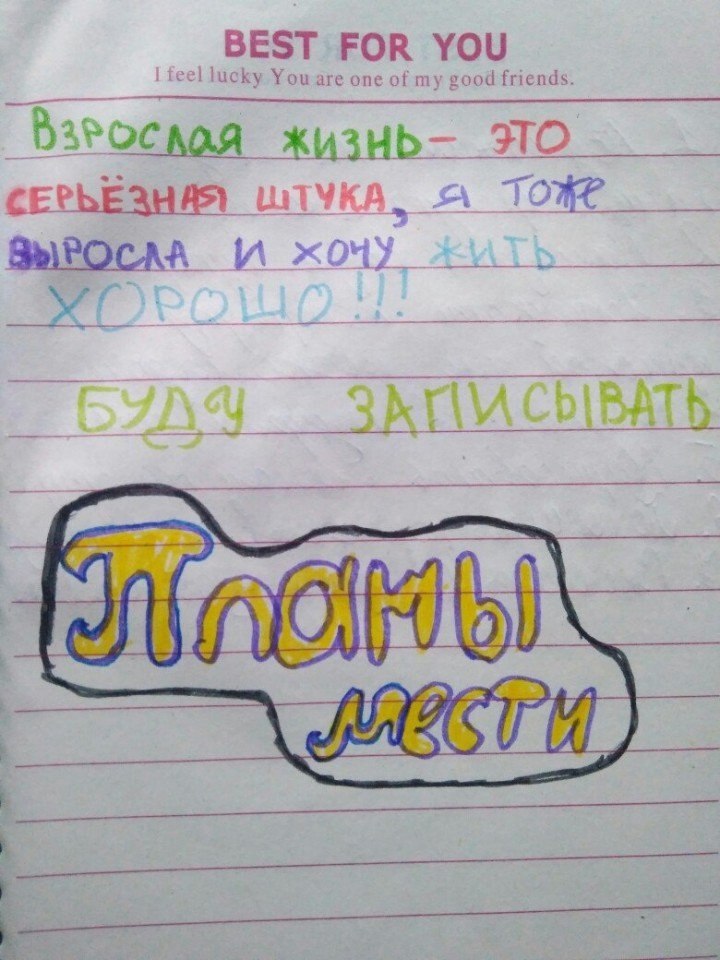 BEST FOR YOU
I feel lucky You are one of my good friends.
ВЗРОСЛАЯ ЖИЗНЬ - ЭТО
СЕРЬЁЗНАЯ ШТУКА, Я ТОЖЕ
ВЫРОСЛА И ХОЧУ ЖИТЬ
ХОРОШО!!!
БУДУ ЗАПИСЫВАТЬ
Планы
мести